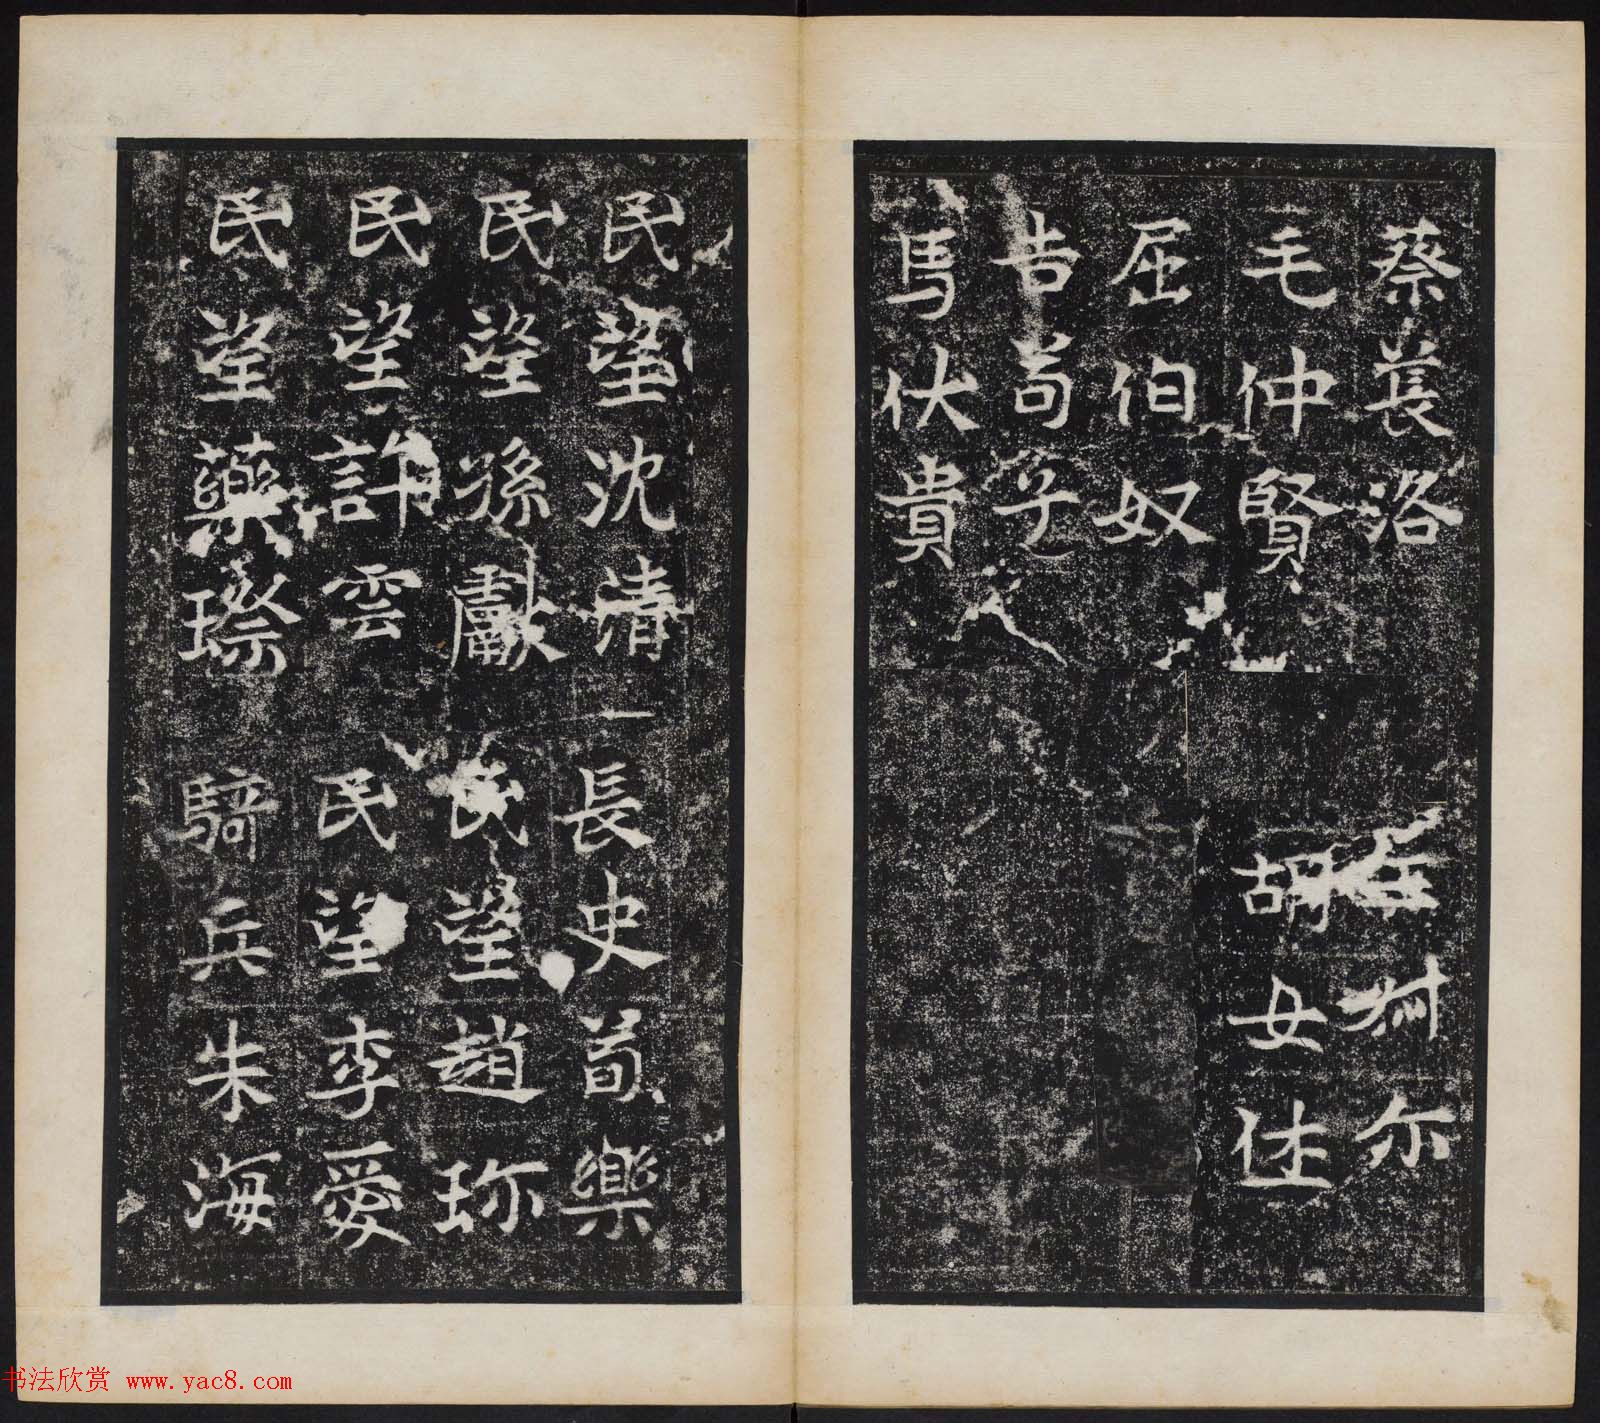 蔡萇洛
毛仲賢
屈伯奴
吉苟子
馬伏貴
尔
胡女
民望沈清
民望孫獻
民望許雲
民望藥璨
長史荀樂
民望趙珎
民望李愛
騎兵朱海
书法欣赏 www.yac8.com